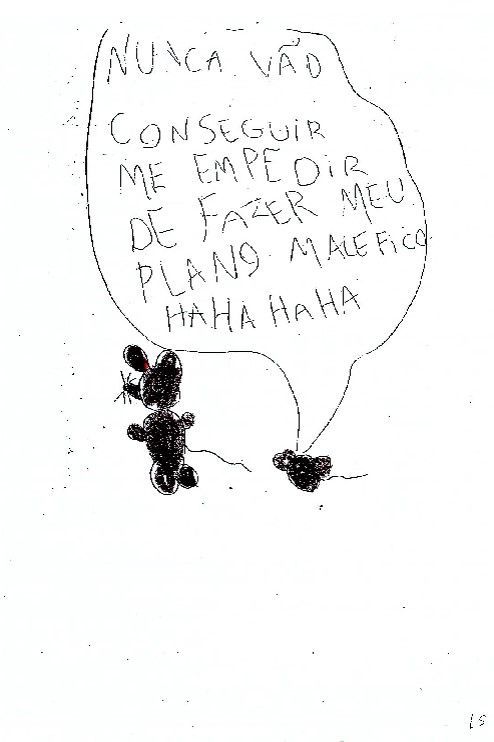 NUNCA VÃO
CONSEGUIR
ME EMPEDIR
DE FAZER MEU
PLANO MALEFICO
HAHAHAHA
15